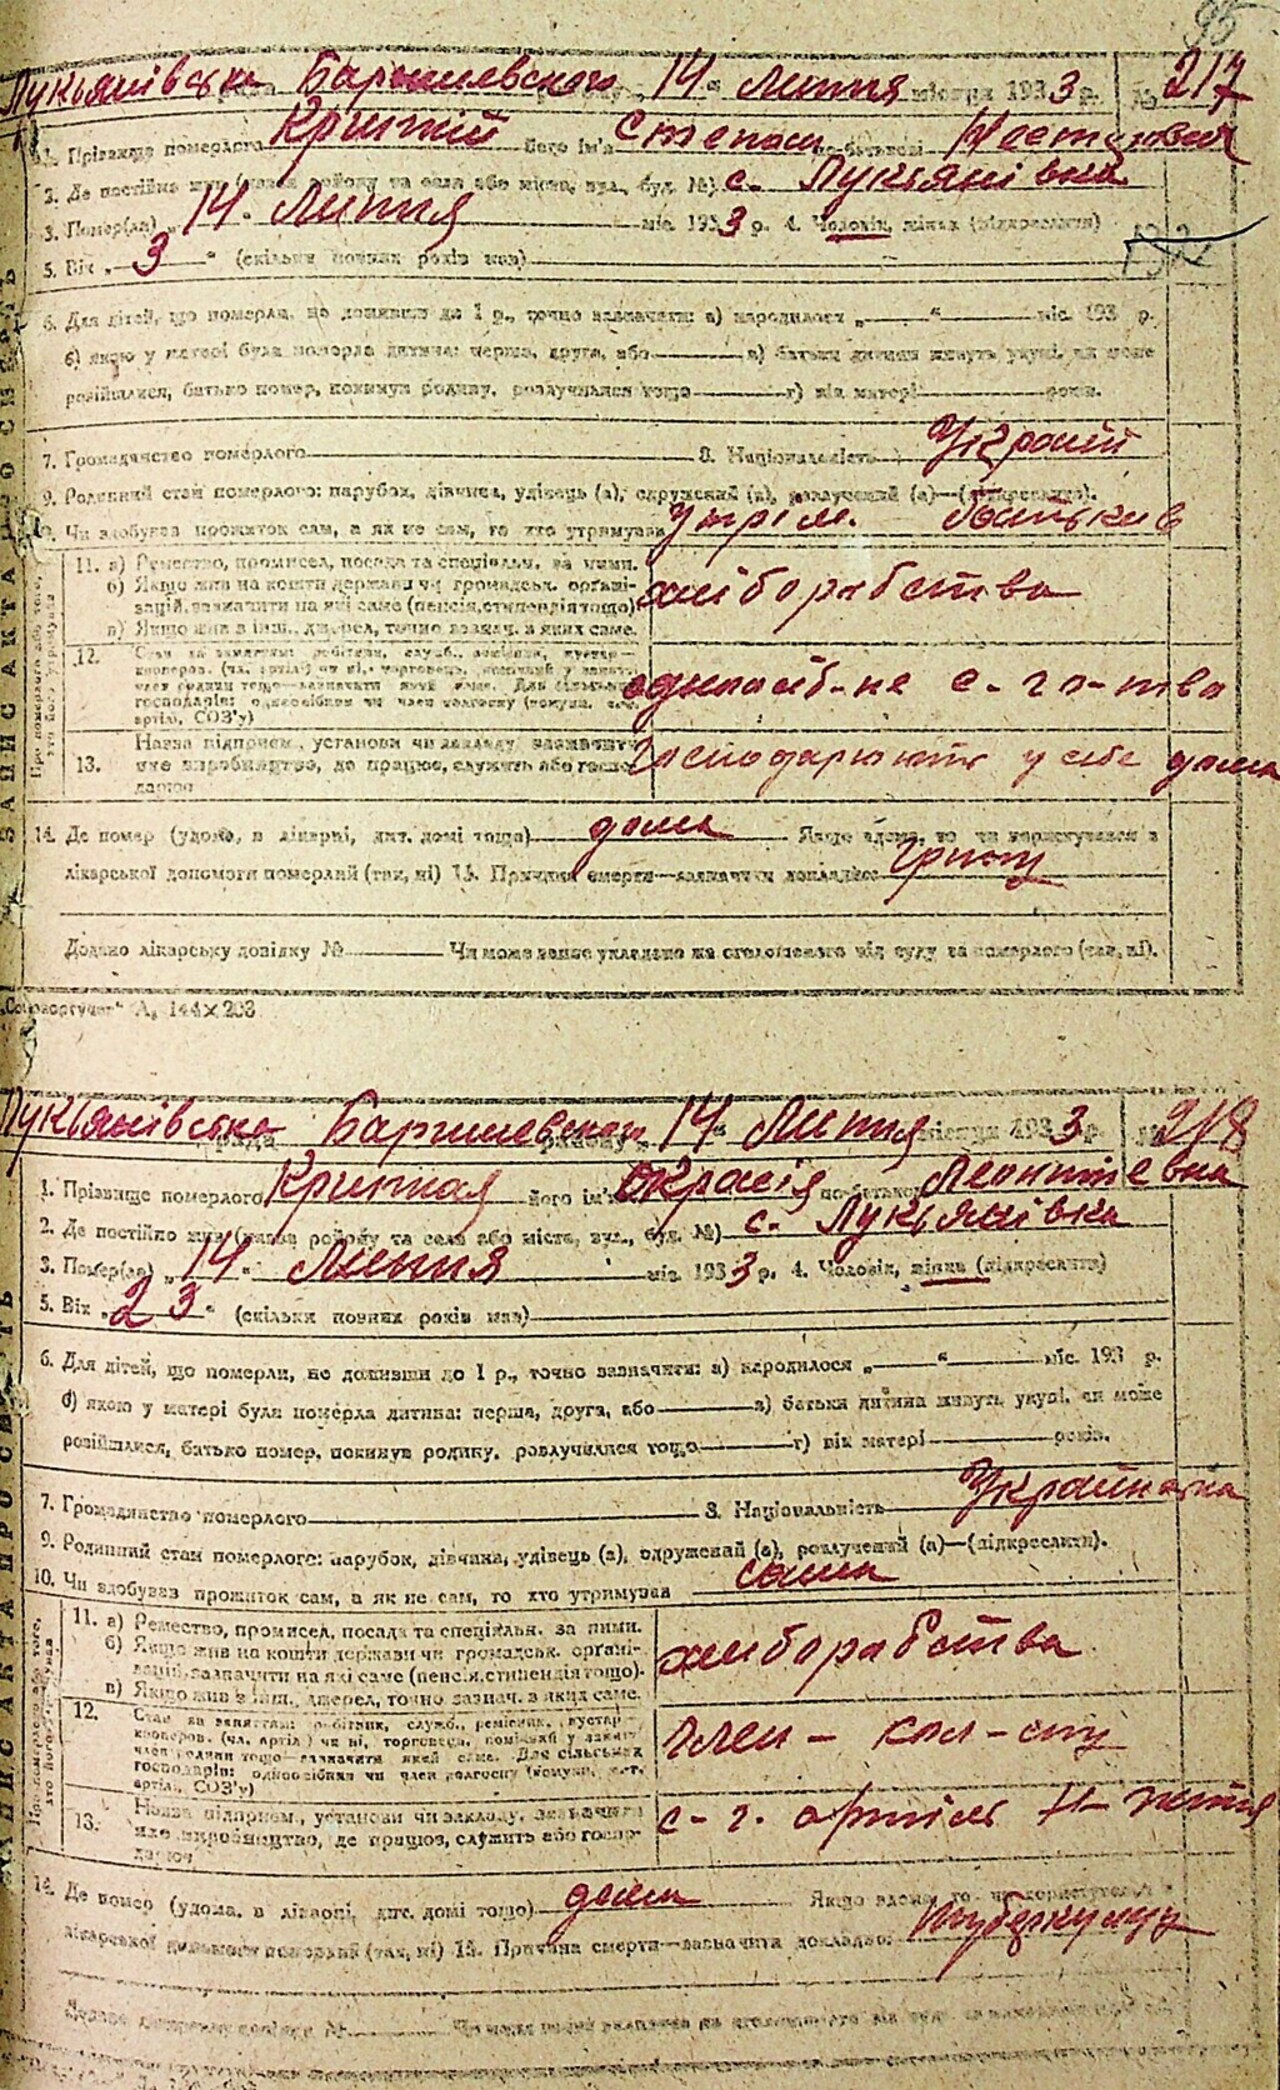 95
Лукьянівська рада Баришевского району „14" Липня місяця 1933 р. № 217
1. Прізвище померлого його ім'я Степан по-батькові
2. Де постійно жив (назва району та села або міста, вул., буд. №) с. Лукьянівка
3. Помер(ла) „14" Липня міс. 1933 р. 4. Чоловік, жінка (підкреслити)
5. Вік „3" (скільки повних років мав)
6. Для дітей, що померли, не доживши до 1 р., точно зазначити: а) народилося „ " міс. 193 р.
б) якою у матері була померла дитина: перша, друга, або в) батьки дитини живуть укупі, чи може
розійшлися, батько помер, покинув родину, розлучилися тощо г) вік матері років.
7. Громадянство померлого 8. Національність
9. Родинний стан померлого: парубок, дівчина, удівець (а), одружений (а), розлучений (а)—(підкреслити).
10. Чи здобував прожиток сам, а як не сам, то хто утримував
11. а) Ремество, промисел, посада та спеціяльн. за ними.
б) Якщо жив на кошти держави чи громадськ. органі-
зацій, зазначити на які саме (пенсія, стипендія тощо)
в) Якщо жив з інш. джерел, точно зазнач. з яких саме.
хліборабства
12. Стан як заняття: робітник, служб., ремісник, кустар—
господарів: одноосібник чи член колгоспу (комуни, с.-г.
артілі, СОЗ'у)
13. Назва підприєм., установи чи закладу, зазначити
яке виробництво, де працює, служить або госпо-
дарює
Господарюють у себе дома
14. Де помер (удома, в лікарні, дит. домі тощо) дома Якщо вдома, то чи користувався з
лікарської допомоги померлий (так, ні) 15. Причина смерти—зазначити докладно:
Додано лікарську довідку № Чи може запис укладено на оголошеного від суду за померлого (так, ні).
А, 144×203
Лукьянівська рада Баришевского району „14" Липня місяця 1933 р. № 218
1. Прізвище померлого його ім'я по-батькові Леонтіевна
2. Де постійно жив (назва району та села або міста, вул., буд. №) с. Лукьянівка
3. Помер(ла) „14" Липня міс. 1933 р. 4. Чоловік, жінка (підкреслити)
5. Вік „23" (скільки повних років мав)
6. Для дітей, що померли, не доживши до 1 р., точно зазначити: а) народилося „ " міс. 193 р.
б) якою у матері була померла дитина: перша, друга, або в) батьки дитини живуть укупі, чи може
розійшлися, батько помер, покинув родину, розлучилися тощо г) вік матері років.
7. Громадянство померлого 8. Національність
9. Родинний стан померлого: парубок, дівчина, удівець (а), одружений (а), розлучений (а)—(підкреслити).
10. Чи здобував прожиток сам, а як не сам, то хто утримував сама
11. а) Ремество, промисел, посада та спеціяльн. за ними.
б) Якщо жив на кошти держави чи громадськ. органі-
зацій, зазначити на які саме (пенсія, стипендія тощо).
в) Якщо жив з інш. джерел, точно зазнач. з яких саме.
хліборабства
12. Стан як заняття: робітник, служб., ремісник, кустар—
господарів: одноосібник чи член колгоспу (комуни, с.-г.
артілі, СОЗ'у)
член – кол-спу
13. Назва підприєм., установи чи закладу, зазначити
яке виробництво, де працює, служить або госпо-
дарює
с-г. артіль
14. Де помер (удома, в лікарні, дит. домі тощо) дома Якщо вдома, то чи користувався з
лікарської допомоги померлий (так, ні) 15. Причина смерти—зазначити докладно: туберкульоз